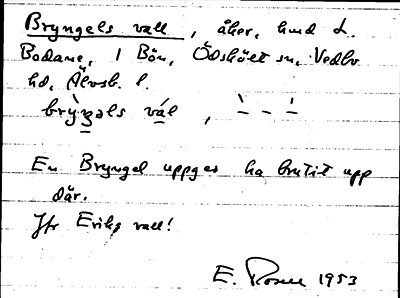 Bryngels vall, åker, hund L.
Bodane, 1 Bön, Ödskölt sn, Vedbo
hd, Älvsb. l.
bryŋəls val, ` - '
En Bryngel uppges ha brutit upp
där.
Jfr Eriks vall!
E. Rosell 1953